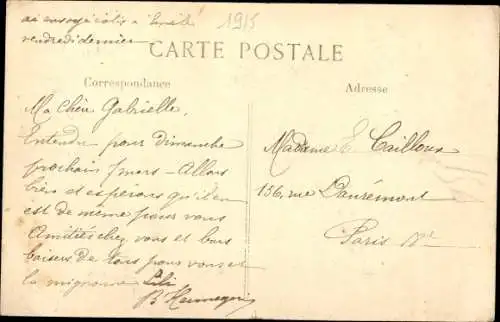 ai envoyé colis à Emile
vendredi dernier
1915
CARTE POSTALE
Correspondance
Adresse
Ma Chère Gabrielle,
Entendu pour Dimanche
prochain 7 mars - Allons
bien et espérons qu'il en
est de même pour vous
Amitiés chez vous et bons
baisers de tous pour vous et
la mignonne Lili
Madame E Cailloux
156, rue Danrémont
Paris